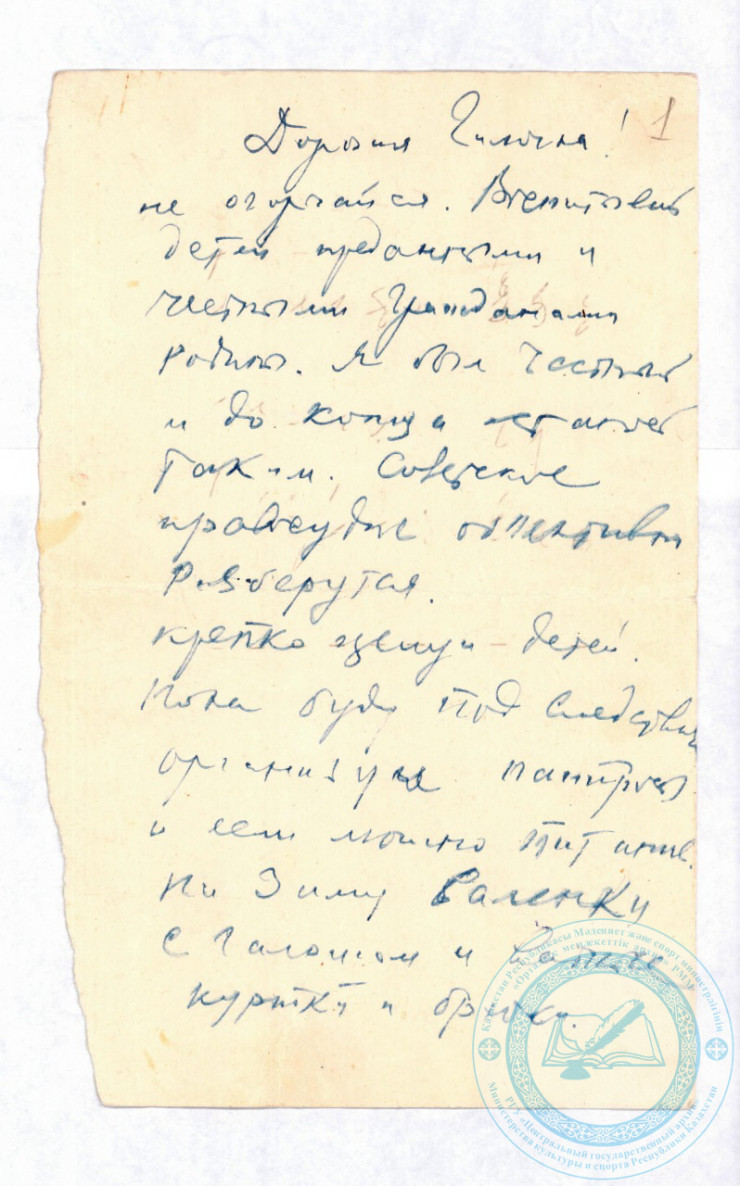 Дорогая Гилочка! 1
не огорчайся. Воспитывай
детей преданными и
честными гражданами
родины. Я был честный
и до конца остаюсь
таким. Советское
правосудие объективно
разберутся.
крепко целуй детей.
Пока буду под следствием
организуй папиросы
и если можно питание.
На зиму валенки
с галошам и
куртку и брюки.
Қазақстан Республикасы Мәдениет және спорт министрлігінің
«Орталық мемлекеттік архиві» РММ
РГУ «Центральный государственный архив»
Министерства культуры и спорта Республики Казахстан